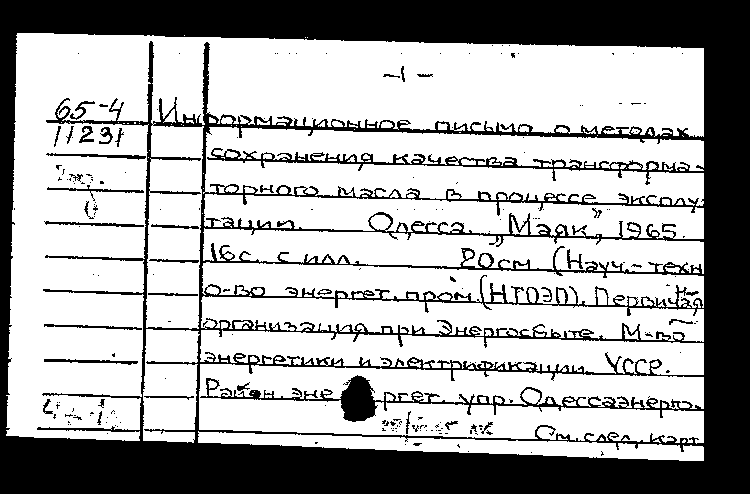 -1-
65-4 Информационное письмо о методах
11231
сохранения качества трансформа-
торного масла в процессе эксплу
тации. Одесса. „Маяк„ 1965.
16с. с илл. 20см (Науч.-техн
о-во энергет. пром. (НТОЭП). Первичная
организация при Энергосбыте. М-во
энергетики и электрификации УССР.
Район. энергет. упр. Одессаэнерго.
См. след. карт